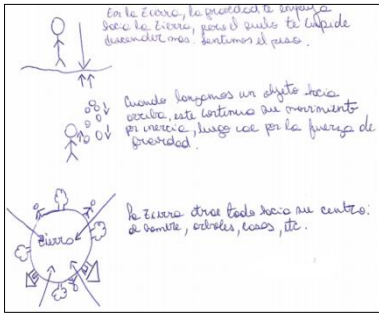 En la Tierra, la gravedad te empuja
hacia la Tierra, pero el suelo te impide
descender más. Sentimos el peso.
Cuando lanzamos un objeto hacia
arriba, este continua su movimiento
por inercia, luego cae por la fuerza de
gravedad.
Tierra
la Tierra atrae todo hacia su centro:
al hombre, arboles, casas, etc.